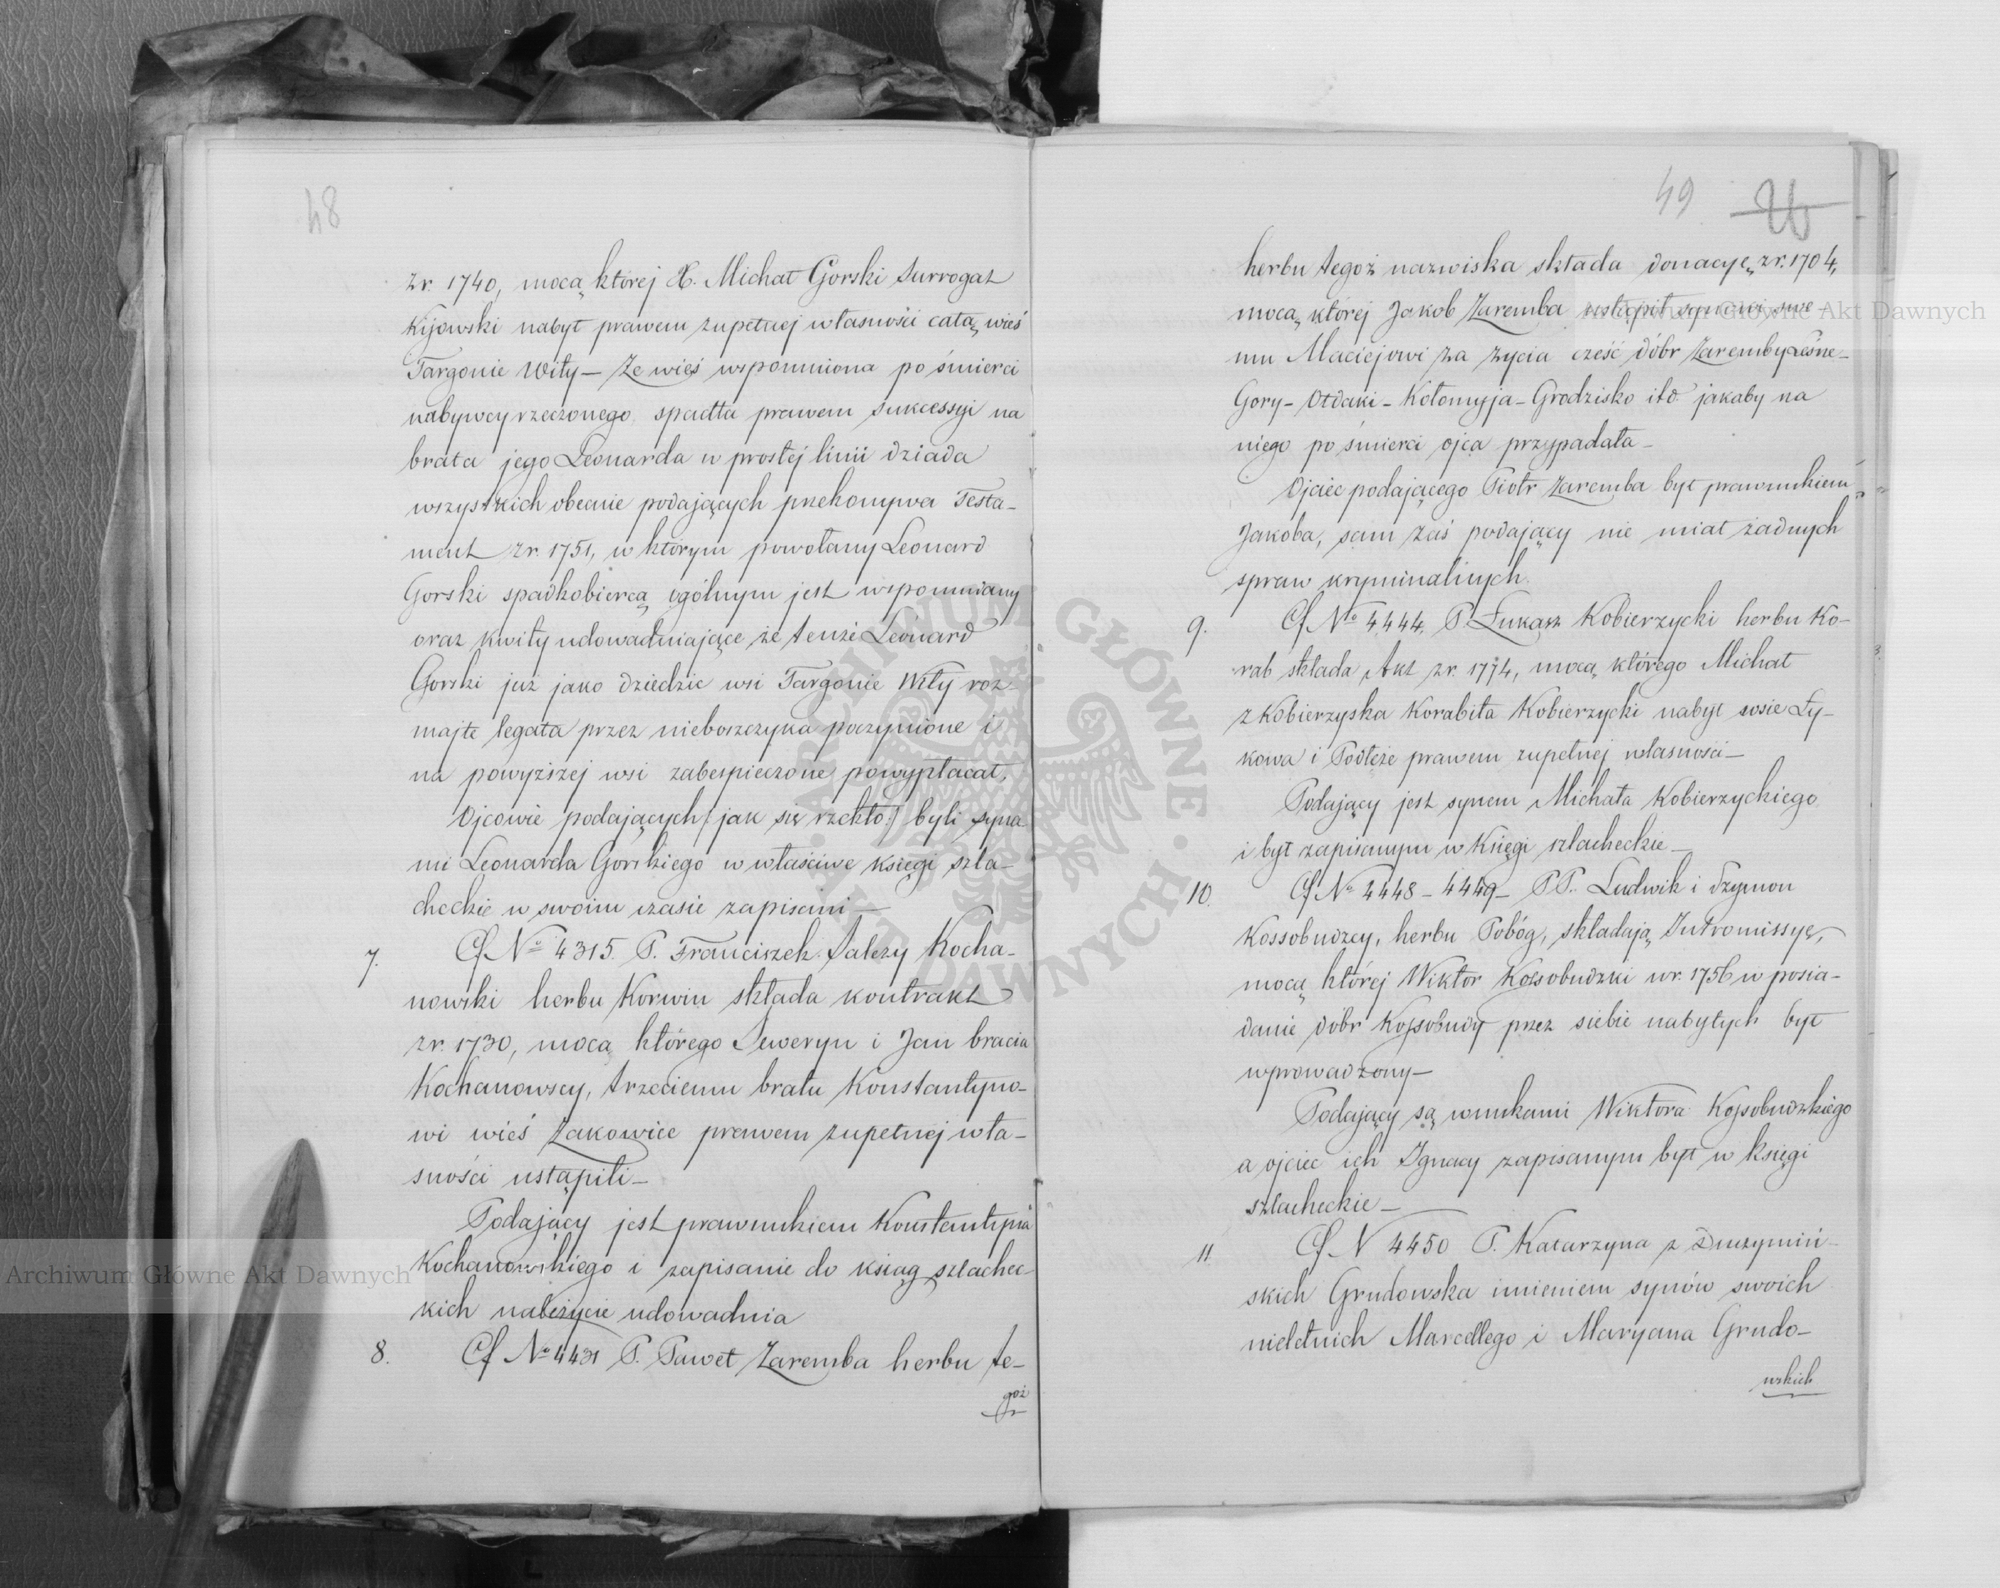 48
zr. 1740, mocą której X. Michał Gorski Surrogat
Kijowski nabył prawem zupełnej własności całą wieś
Targonie Wity – Że wieś wspomniona po śmierci
nabywcy rzeczonego, spadła prawem sukcessyi na
brata jego Leonarda w prostej linii dziada
wszystkich obecnie podających przekonywa Testa-
ment zr. 1751, w którym powołany Leonard
Gorski spadkobiercą ogólnym jest wspomniany
oraz kwity udowadniające że tenże Leonard
Gorski już jako dziedzic wsi Targonie Wity roz-
majte legata przez nieboszczyka poczynione i
na powyższej wsi zabespieczone powypłacał,
Ojcowie podających /: jak się rzekło :/ byli syna
mi Leonarda Górskiego w właściwe księgi szla-
checkie w swoim czasie zapisani –
7. Cf No 4315. P. Franciszek Salezy Kocha-
nowski herbu Korwin składa kontrakt
zr. 1730, mocą którego Seweryn i Jan bracia
Kochanowscy, trzeciemu bratu Konstantyno-
wi wieś Żakowice prawem zupełnej wła-
sności ustąpili –
Podający jest prawnukiem Konstantyna
Kochanowskiego i zapisanie do ksiąg szlachec-
kich należycie udowadnia
8. Cf No 4431 P. Paweł Zaremba herbu te-
goż
49
herbu tegoż nazwiska składa donacyę zr. 1704,
mocą której Jakob Zaremba ustąpił synowi swe-
mu Maciejowi za życia cześć dóbr Zaremby Leśne-
Gory – Otdaki – Kołomyja – Grodzisko itd jakaby na
niego po śmierci ojca przypadała –
Ojciec podającego Piotr Zaremba był prawnukiem
Jakoba, sam zaś podający nie miał żadnych
spraw kryminalnych.
9. Cf No 4444, P. Łukasz Kobierzycki herbu Ko-
rab składa Akt zr. 1774, mocą którego Michał
z Kobierzyska Korabita Kobierzycki nabył wsie Ły-
kowa i Podłęże prawem zupełnej własności –
Podający jest synem Michała Kobierzyckiego
i był zapisanym w Księgi szlacheckie –
10. Cf No 4448 – 4449 – PP. Ludwik i Szymon
Kossobudzcy, herbu Pobóg, składają Intromissyę,
mocą której Wiktor Kossobudzki w r. 1756 w posia-
danie dobr Kossobudy przez siebie nabytych był
wprowadzony –
Podający są wnukami Wiktora Kossobudzkiego
a ojciec ich Ignacy zapisanym był w księgi
szlacheckie –
11. Cf N 4450 P. Katarzyna z
skich Grudowska imieniem synów swoich
nieletnich Marcellego i Maryana Grudo-
wskich
Archiwum Główne Akt Dawnych
Archiwum Główne Akt Dawnych
ARCHIWUM GŁÓWNE AKT DAWNYCH